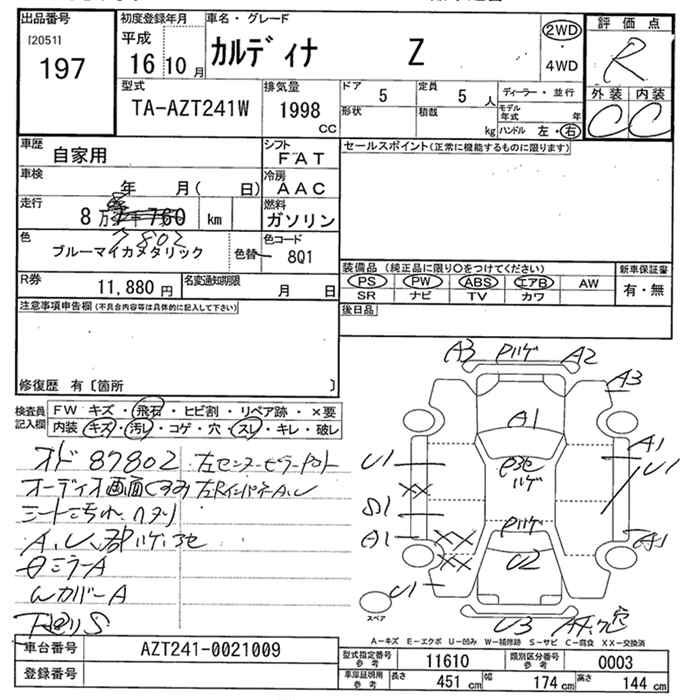 出品番号
[2051]
197
初度登録年月
平成
16 10 月
車名・グレード
カルディナ Z
2WD
・
4WD
評価点
R
外装 内装
C C
型式
TA-AZT241W
排気量
1998
cc
ドア 5
形状
定員 5 人
積載 kg
ディーラー・並行
モデル年式 年
ハンドル 左・右
車歴
自家用
シフト
FAT
車検
年 月( 日)
冷房
AAC
走行
8 万 7千 760 km
7802
燃料
ガソリン
色
ブルーマイカメタリック
色替
色コード
8Q1
R券
11,880 円
名変通知期限
月 日
セールスポイント(正常に機能するものに限ります)
装備品(純正品に限り○をつけてください)
PS PW ABS エアB AW
SR ナビ TV カワ
新車保証書
有・無
後日品
注意事項申告欄(不具合内容等は具体的に記入して下さい)
修復歴 有〔箇所 〕
検査員記入欄
FW キズ・飛石・ヒビ割・リペア跡・×要
内装 キズ・汚レ・コゲ・穴・スレ・キレ・破レ
オド 87802
オーディオ画面
シート
ミラーA
WカバーA
A3 ハゲ A2
A3
A1
A1
U1
U1
XX
S1
A1
XX
XX
U1
ハゲ
U2
A1
U3
スペア
A-キズ E-エクボ U-凹み W-補修跡 S-サビ C-腐食 XX-交換済
車台番号
AZT241-0021009
登録番号
型式指定番号参考
11610
類別区分番号参考
0003
車庫証明用参考
長さ 451 cm
幅 174 cm
高さ 144 cm